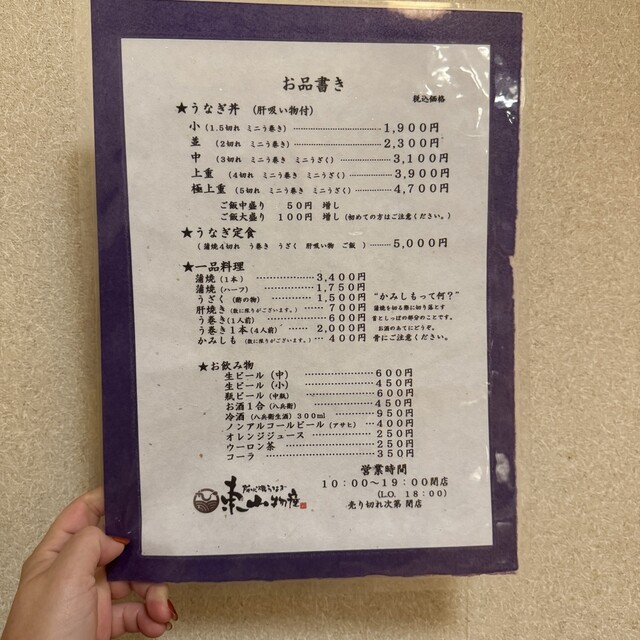 お品書き
税込価格
★うなぎ丼 (肝吸い物付)
小(1.5切れ ミニう巻き)……………1,900円
並 (2切れ ミニう巻き)……………2,300円
中 (3切れ ミニう巻き ミニうざく)……………3,100円
上重 (4切れ ミニう巻き ミニうざく)……………3,900円
極上重 (5切れ ミニう巻き ミニうざく)……………4,700円
ご飯中盛り 50円 増し
ご飯大盛り 100円 増し(初めての方はご注意ください。)
★うなぎ定食
(蒲焼4切れ う巻き うざく 肝吸い物 ご飯)………5,000円
★一品料理
蒲焼(1本)……………3,400円
蒲焼(ハーフ)……………1,750円
うざく(酢の物)……………1,500円
肝焼き(数に限りがございます。)……700円
う巻き(1人前)……………600円
う巻き1本(4人前)……2,000円
かみしも(数に限りがございます。)…400円
"かみしもって何?"
蒲焼を切る際に切り落とす
首としっぽの部分のことです。
お酒のあてにどうぞ。
骨にご注意ください。
★お飲み物
生ビール(中)……………600円
生ビール(小)……………450円
瓶ビール(中瓶)……………600円
お酒1合(八兵衛)……………450円
冷酒(八兵衛生酒)300ml……………950円
ノンアルコールビール(アサヒ)…400円
オレンジジュース……………250円
ウーロン茶……………250円
コーラ……………350円
営業時間
10:00〜19:00閉店
(L.O. 18:00)
売り切れ次第 閉店
東山物産